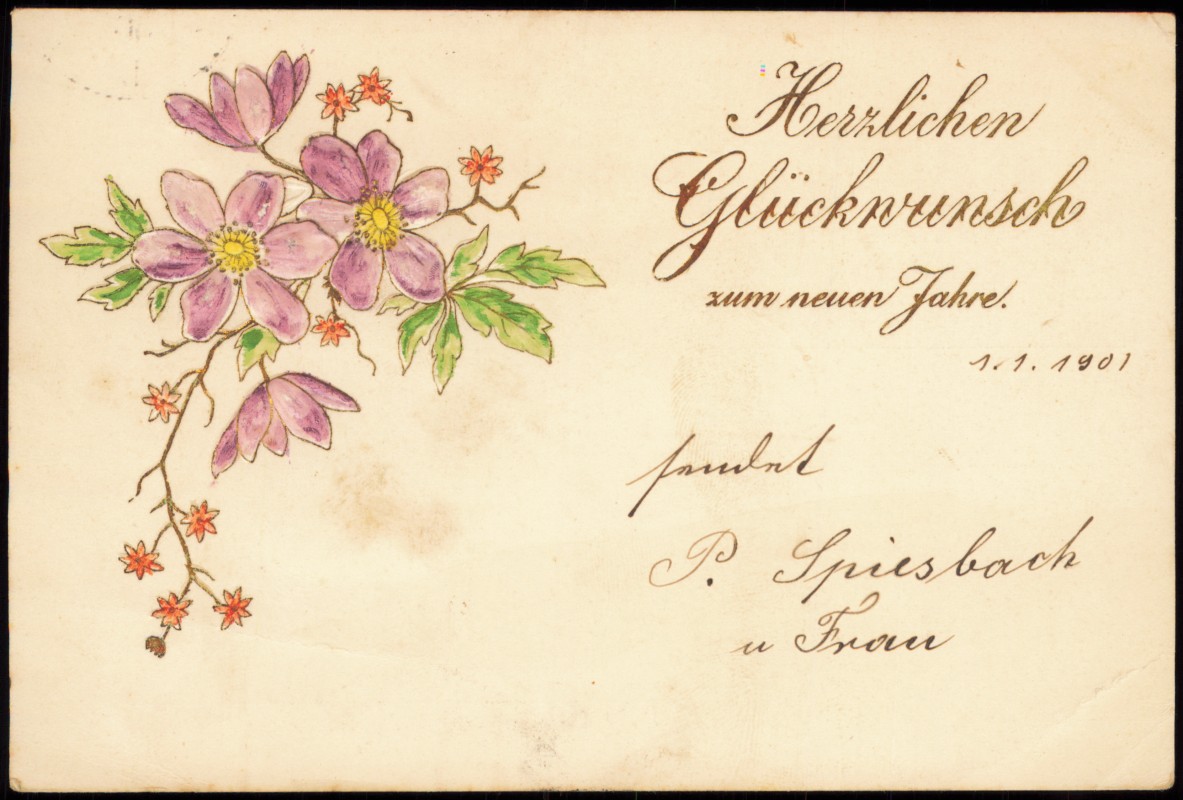 Herzlichen
Glückwunsch
zum neuen Jahre.
1.1.1901
sendet
P. Spiesbach
u Frau